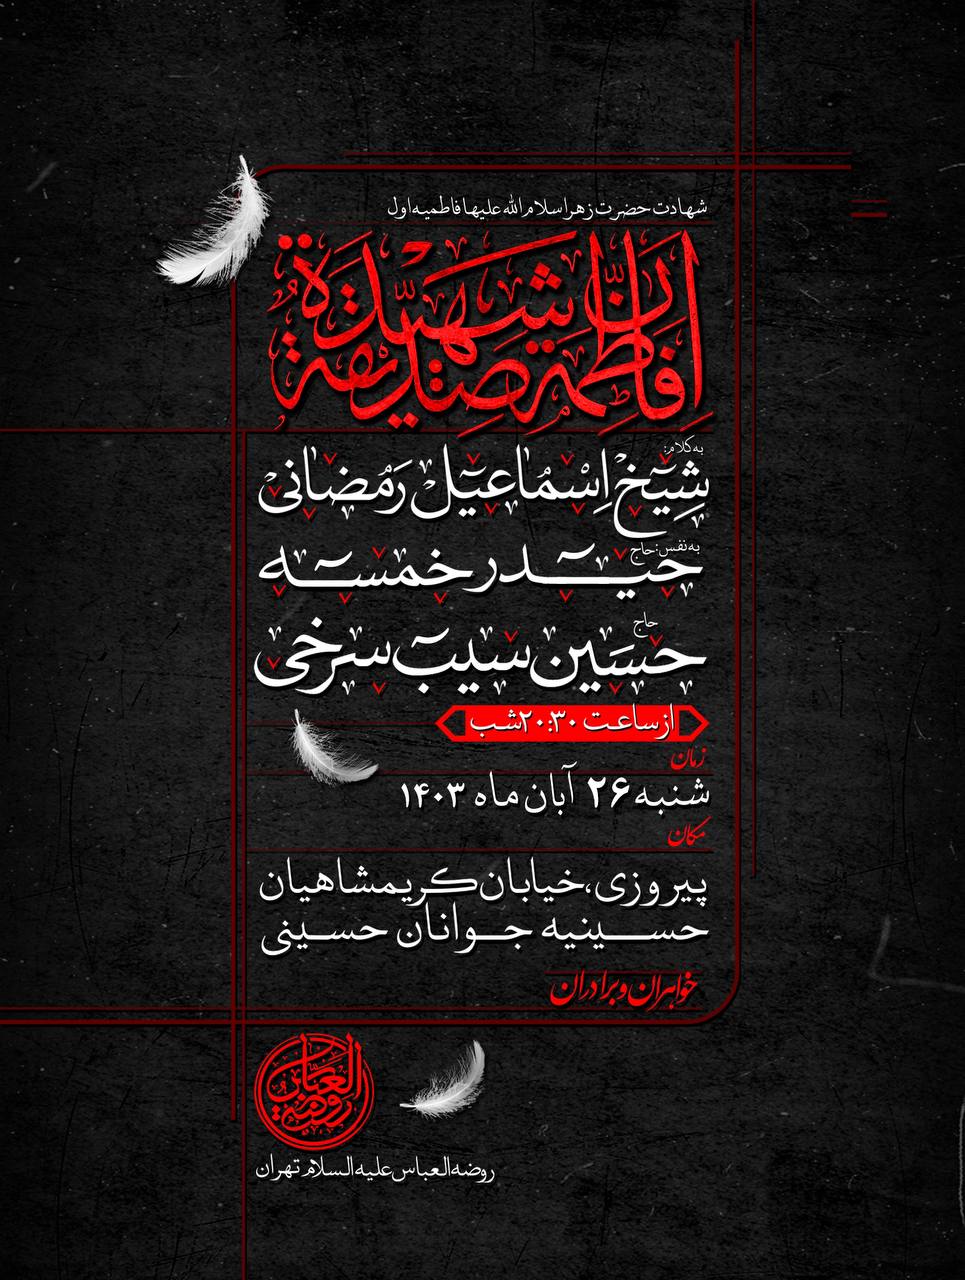 شهادت حضرت زهرا سلام الله علیها فاطمیه اول
اِنَّ فاطِمَةَ صِدّیقَةٌ شَهیدَةٌ
به کلام:
شیخ اسماعیل رمضانی
به نفس: حاج
حیدر خمسه
حاج
حسین سیب سرخی
از ساعت ۲۰:۳۰ شب
زمان
شنبه ۲۶ آبان ماه ۱۴۰۳
مکان
پیروزی، خیابان کریمشاهیان
حسینیه جوانان حسینی
خواهران و برادران
روضة العباس
روضه العباس علیه السلام تهران